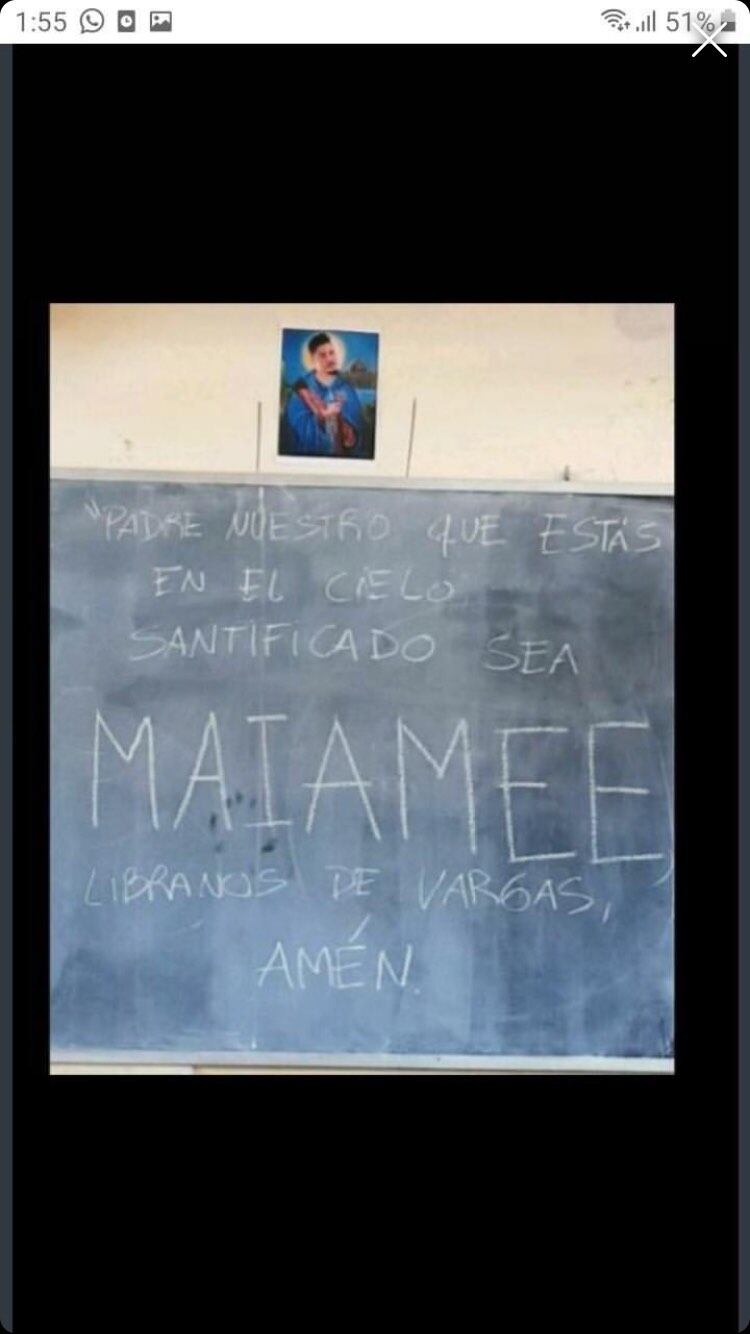 1:55 51%
"PADRE NUESTRO QUE ESTÁS
EN EL CIELO
SANTIFICADO SEA
MAIAMEE,
LIBRANOS DE VARGAS,
AMÉN.